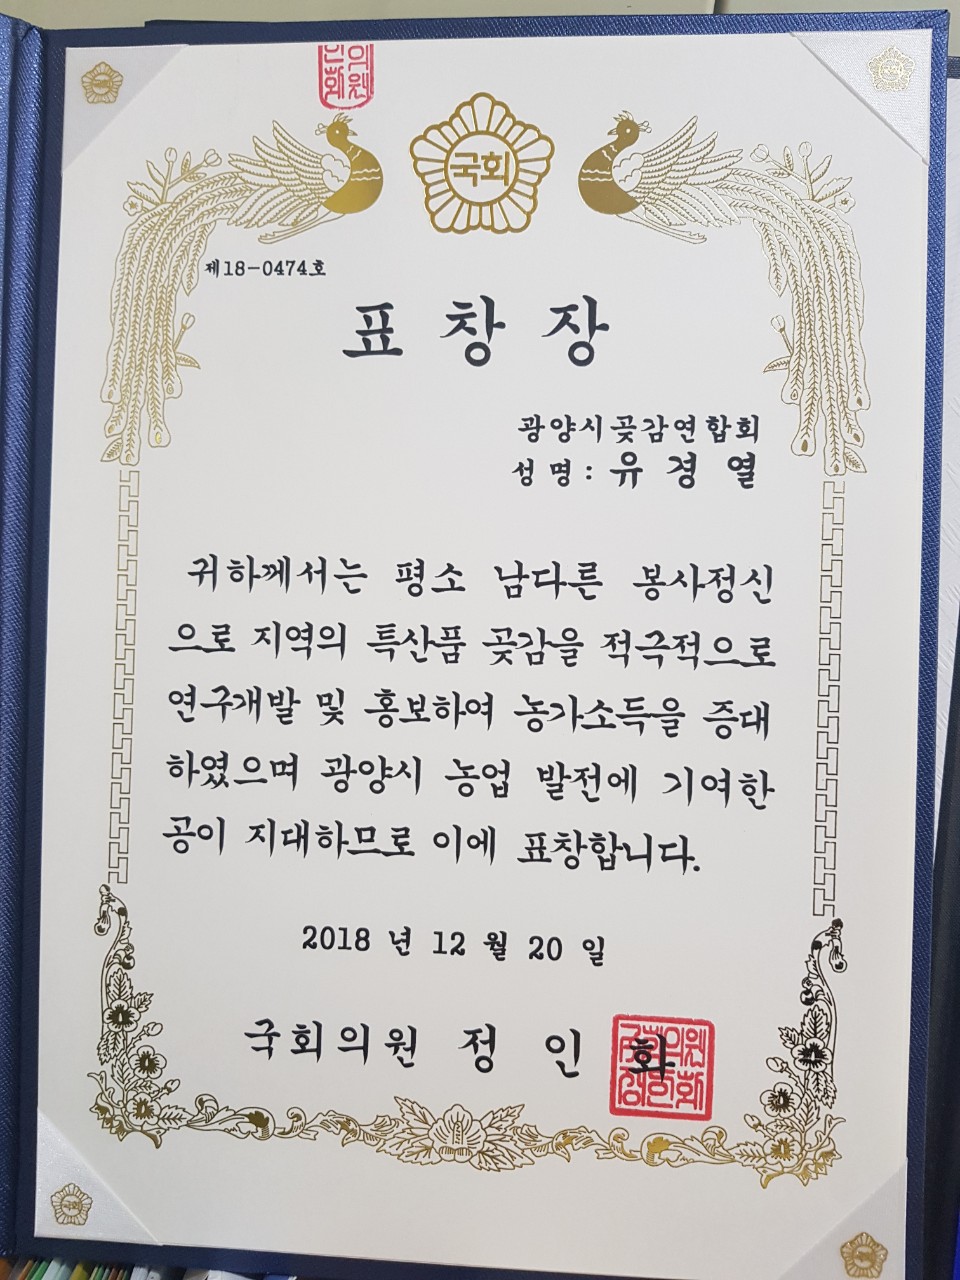 국회
제18-0474호
표 창 장
광양시곶감연합회
성 명 : 유 경 열
귀하께서는 평소 남다른 봉사정신
으로 지역의 특산품 곶감을 적극적으로
연구개발 및 홍보하여 농가소득을 증대
하였으며 광양시 농업 발전에 기여한
공이 지대하므로 이에 표창합니다.
2018 년 12 월 20 일
국회의원 정 인 화